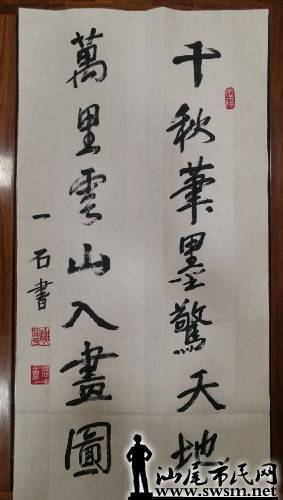 千秋筆墨驚天地
萬里雲山入畫圖
一石書
汕尾市民网
www.swsm.net